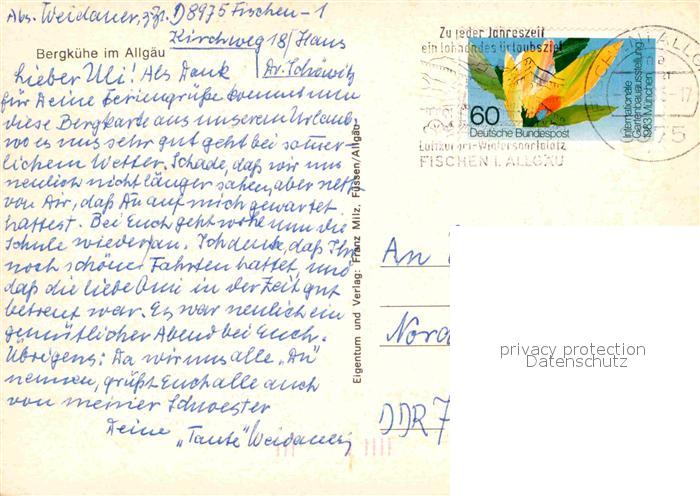 Abs. Weidauer, z.Zt. D8975 Fischen-1
Kirchweg 18/Haus
Bergkühe im Allgäu
Lieber Uli! Als Dank
für Deine Feriengrüße kommt nun
diese Bergkarte aus unserem Urlaub,
wo es uns sehr gut geht bei
lichem Wetter. Schade, daß wir uns
neulich nicht länger sahen, aber nett
von Dir, daß Du auf mich gewartet
hattest. Bei Euch geht wohl nun die
Schule wieder an. Ich denke, daß Ihr
noch schöne Fahrten hattet, und
daß die liebe Omi in der Zeit gut
betreut war. Es war neulich ein
gemütlicher Abend bei Euch.
Übrigens: Da wir uns alle „Du"
nennen, grüßt Euch alle auch
von meiner Schwester
Deine „Tante" Weidauer
Eigentum und Verlag: Franz Milz, Füssen/Allgäu
Zu jeder Jahreszeit
ein lohnendes Urlaubsziel
Luftkurort-Wintersportplatz
FISCHEN I. ALLGÄU
60
Deutsche Bundespost
Internationale
Gartenbauausstellung
1983 München
8975
An
Nord
DDR 7
privacy protection
Datenschutz